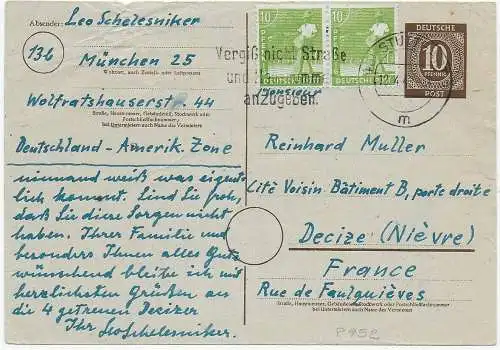 Absender: Leo Schelesniker
13b
München 25
Wohnort, auch Zustell- oder Leitpostamt
Wolfratshauserstr. 44
Straße, Hausnummer, Gebäudeteil, Stockwerk oder Postschließfachnummer,
bei Untermietern auch Name des Vermieters
Deutschland - Amerik. Zone
niemand weiß was eigent-
lich kommt. Sind Sie froh,
daß Sie diese Sorgen nicht
haben. Ihrer Familie und
besonders Ihnen alles Gute
wünschend bleibe ich mit
herzlichsten Grüßen an
die 4 getreuen Decizer
Ihr
10
10
DEUTSCHE
10
PFENNIG
POST
DEUTSCHE
Vergiß nicht Straße
und
anzugeben.
m
Monsieur
Reinhard Muller
Cité Voisin. Bâtiment B, porte droite
Decize (Nièvre)
France
Rue de Faulquièves
Straße, Hausnummer, Gebäudeteil, Stockwerk oder Postschließfachnummer,
bei Untermietern auch Name des Vermieters
P 952